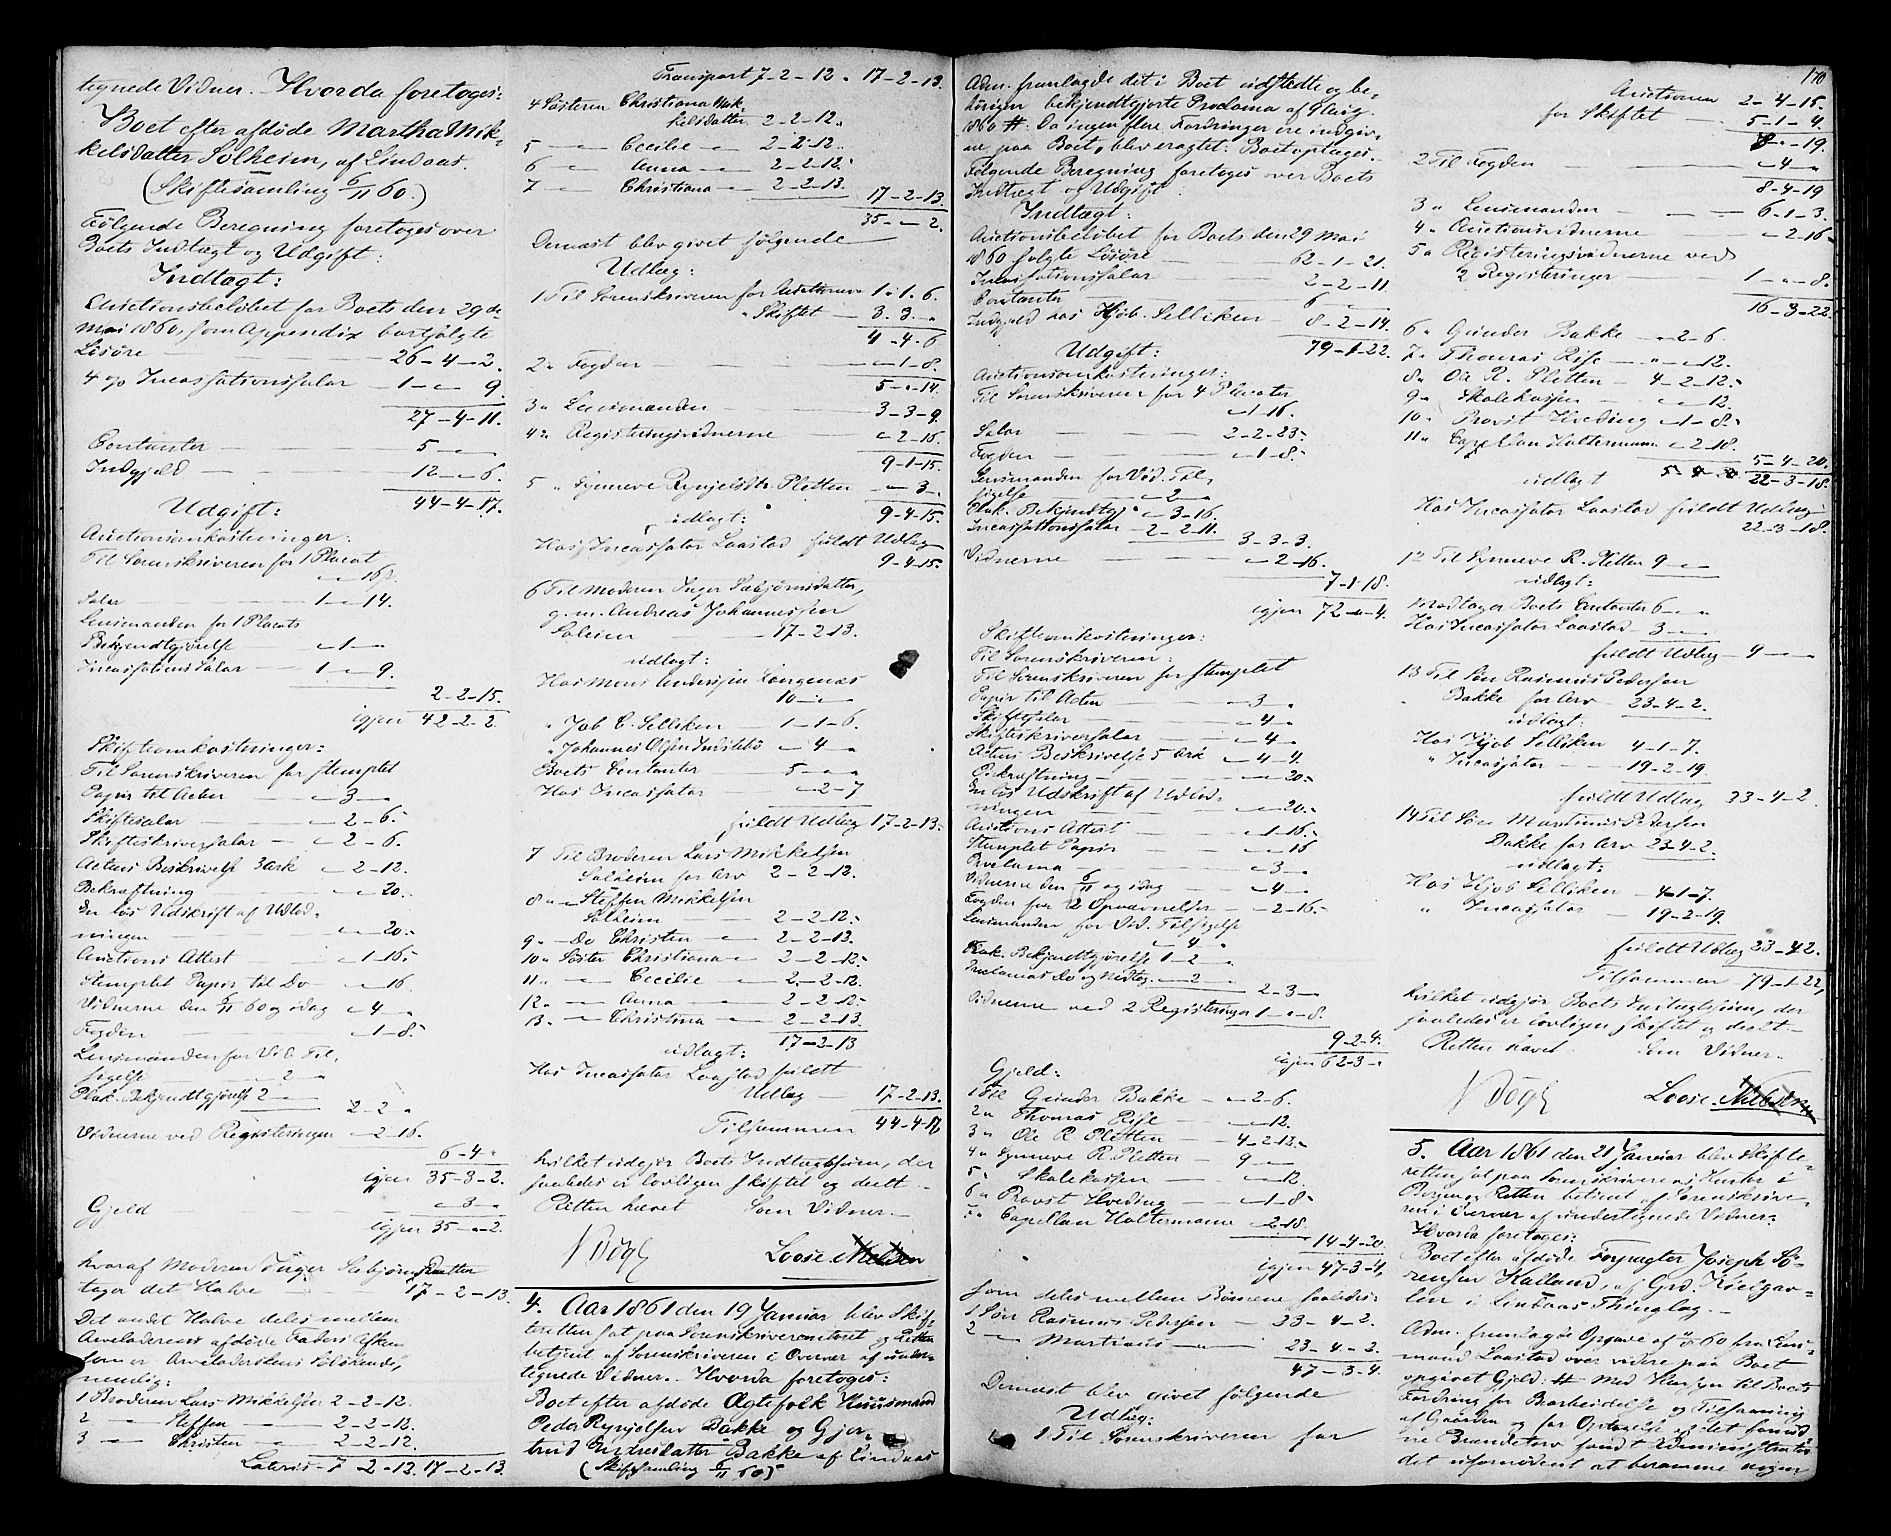 tegnede Vidner. Hvorda foretoges:
Boet efter afdøde Martha Mik-
kelsdatter Solheim, af Lindaas.
(Skiftesamling 6/11 60.)
Følgende Beregning foretoges over
Boets Indtægt og Udgift:
Indtægt:
Auctionsbeløbet for Boets den 29de
Mai 1860, som Appendix bortsolgte
Løsøre — 26-4-2.
4 % Incassationssalær — 1-"-9.
27-4-11.
Contanter — 5-"-"
Indgjeld — 12-"-6.
44-4-17.
Udgift:
Auctionsomkostninger:
Til Sorenskriveren for 1 Placat
"-"-16
Salær — 1-"-14.
Lensmanden for 1 Placats
Bekjendtgjørelse "-1-"
Incassations Salær — 1-"-9.
2-2-15.
igjen 42-2-2.
Skifteomkostninger:
Til Sorenskriveren for stemplet
Papir til Acten — "-3-"
Skiftesalær — "-2-6.
Skifteskriversalær — "-2-6.
Actens Beskrivelse 3 Ark "-2-12.
Bekræftning — "-"-20.
En løs Udskrift af Udlod-
ningen — "-"-20.
Auctions Attest — "-1-16.
Stemplet Papir til Do "-"-16
Vidnerne den 6/11 60 og idag "-4-"
Fogden — "-1-8.
Lensmanden for Vid. Til-
sigelse — 2-"
Plak. Bekjendtgjørelse 2-"
2-2-"
Vidnerne ved Registeringen "-2-16.
6-4-"
igjen 35-3-2.
Gjeld — "-3-"
igjen 35-"-2.
hvoraf Moderen Inger Sæbjørnsdatter
tager det Halve — 17-2-13.
Det andet Halve deles mellem
Arveladerens afdøde Faders Afkom
som er Arveladerskens Sødskende,
nemlig:
1 Broderen Lars Mikkelsen 2-2-12.
2 — Steffen — 2-2-12.
3 — Christen — 2-2-12.
Lateris 7-2-12. 17-2-13.
Transport 7-2-12. 17-2-13.
4 Søsteren Christiana Mik-
kelsdatter 2-2-12.
5 — Cecilie — 2-2-12.
6 — Anna — 2-2-12.
7 — Christiana — 2-2-13.
17-2-13.
35-"-2.
Dernæst blev givet følgende
Udlæg:
1 Til Sorenskriveren for Auctionen 1-1-6.
" Skiftet — 3-3-"
4-4-6
2 " Fogden — "-1-8.
5-"-14.
3 " Lensmanden — 3-3-9
4 " Registeringsvidnerne — "-2-16.
9-1-15.
5 " Synneve Rynjelsdtr Pletten — "-3-"
9-4-15.
udlagt:
Hos Incassator Laastad fuldt Udlæg
9-4-15.
6 Til Moderen Inger Sæbjørnsdatter,
g. m. Andreas Johannessen
Solheim — 17-2-13.
udlagt:
Hos Mons Andersen Langenæs
10-"-"
" Job C. Selliken — 1-1-6.
" Johannes Olsen Indstebø "-4-"
Boets Contanter — 5-"-"
Hos Incassator — "-2-7
fuldt Udlæg 17-2-13.
7 Til Broderen Lars Mikkelsen
Solheim for Arv 2-2-12.
8 " — Steffen Mikkelsen
Solheim — 2-2-12.
9 " — Do Christen — 2-2-13.
10 " Søster Christiana — 2-2-12.
11 " — Cecilie — 2-2-12.
12 " — Anna — 2-2-12.
13 " — Christina — 2-2-13.
17-2-13
udlagt:
Hos Incassator Laastad fuldt
Udlæg — 17-2-13.
Tilsammen 44-4-17
hvilket udgjør Boets Indtægtssum, der
saaledes er lovligen skiftet og deelt.—
Retten hævet Som Vidner.—
Loose Nielsen
4. Aar 1861 den 19 Januar blev Skif-
teretten sat paa Sorenskrivercontoret og Retten
betjent af Sorenskriveren i Overvær af under-
tegnede Vidner. Hvorda foretoges:
Boet efter afdøde Ægtefolk Huusmand
Peder Rynjelsen Bakke og Gjer-
trud Endresdatter Bakke af Lindaas
(Skiftesamling 6/11 60)
Adm. fremlagde det i Boet udstedte og be-
hørigen bekjendtgjorte Proclama af
1860 #: Da ingen flere Fordringer ere indgiv-
ne paa Boet, blev eragtet: Boet optages.
Følgende Beregning foretoges over Boets
Indtægt og Udgift:
Indtægt:
Auctionsbeløbet for Boets den 29 Mai
1860 solgte Løsøre — 62-1-21.
Incassationssalær — 2-2-11.
Contanter — 6-"-"
Indgjeld hos Hjøb. Selliken — 8-2-14.
79-1-22.
Udgift:
Auctionsomkostninger:
Til Sorenskriveren for 4 Placater
"-1-16.
Salær — 2-2-23.
Fogden — "-1-8.
Lensmanden for Vid. Til-
sigelse — "-2-"
Plak. Bekjendtgj. "-3-16.
Incassationssalær 2-2-11.
3-3-3.
Vidnerne — "-2-16.
7-1-18.
igjen 72-"-4.
Skifteomkostninger:
Til Sorenskriveren:
Til Sorenskriveren for stemplet
Papir til Acten — "-3-"
Skiftesalær — "-4-"
Skifteskriversalær — "-4-"
Actens Beskrivelse 5 Ark "-4-4.
Bekræftning — "-"-20.
En løs Udskrift af Udlod-
ningen — "-"-20.
Auctions Attest — "-1-16.
Stemplet Papir — "-"-16
Proclama — "-3-"
Vidnerne den 6/11 og idag — "-4-"
Fogden for 2 Opnævnelser — "-2-16.
Lensmanden for Vid. Tilsigelse
"-4-"
Plak. Bekjendtgjørelse 1-2-"
Proclamas Do og Modtag. "-2-"
2-3-"
Vidnerne ved 2 Registeringer 1-"-8.
9-2-4.
igjen 62-3-"
Gjeld:
1 Til Gunder Bakke — "-2-6.
2 " Thomas Rise — "-"-12.
3 " Ole R. Pletten — 4-2-12.
4 " Synneve R. Pletten — 9-"-"
5 " Skolekassen — "-"-12.
6 " Provst Hveding — "-1-8.
7 " Capellan Holtermann — "-2-18.
14-4-20.
igjen 47-3-4,
som deles mellem Børnene saaledes:
1 Søn Rasmus Pedersen — 23-4-2.
2 — Martinus — 23-4-2.
47-3-4.
Dernæst blev givet følgende
Udlæg:
1 Til Sorenskriveren for
170
Auctionen 2-4-15.
for Skiftet 5-1-4.
8-"-19.
2 Til Fogden — "-4-"
8-4-19
3 " Lensmanden — 6-1-3.
4 " Auctionsvidnerne — "-2-16.
5 " Registeringsvidnerne ved
2 Registeringer — 1-"-8.
16-3-22.
6 " Gunder Bakke — "-2-6.
7 " Thomas Rise — "-"-12.
8 " Ole R. Pletten — 4-2-12.
9 " Skolekassen — "-"-12.
10 " Provst Hveding — "-1-8.
11 " Capellan Holtermann "-2-18.
5-4-20.
udlagt 22-3-18.
Hos Incassator Laastad fuldt Udlæg
22-3-18.
12 Til Synneve R. Pletten 9-"-"
udlagt:
Modtager Boets Contanter 6-"-"
Hos Incassator Laastad 3-"-"
fuldt Udlæg 9-"-"
13 Til Søn Rasmus Pedersen
Bakke for Arv 23-4-2.
udlagt:
Hos Hjøb Selliken 4-1-7.
" Incassator — 19-2-19.
fuldt Udlæg 23-4-2
14 Til Søn Martinus Pedersen
Bakke for Arv 23-4-2.
udlagt:
Hos Hjøb Selliken — 4-1-7.
" Incassator — 19-2-19.
fuldt Udlæg 23-4-2.
Tilsammen 79-1-22,
hvilket udgjør Boets Indtægtssum, der
saaledes er lovligen skiftet og deelt—
Retten hævet. Som Vidner.—
Loose Nielsen
5. Aar 1861 den 21 Januar blev Skifte-
retten sat paa Sorenskriverens Contor i
Bergen og Retten betjent af Sorenskrive-
ren i Overvær af undertegnede Vidner:
Hvorda foretoges:
Boet efter afdøde Forpagter Joseph Sø-
rensen Halland, af Grd. Kielgav-
len i Lindaas Thinglag.—
Adm. fremlagde Opgave af 60 fra Lens-
mand Laastad over videre paa Boet
opgivet Gjeld: # Med Hensyn til Boets
Fordring for Bearbeidelse og Tilsaaning
af Gaarden og for Optagelse af det forød-
ne Brændetorv fandt Administrator
det ufornødent at beramme nogen